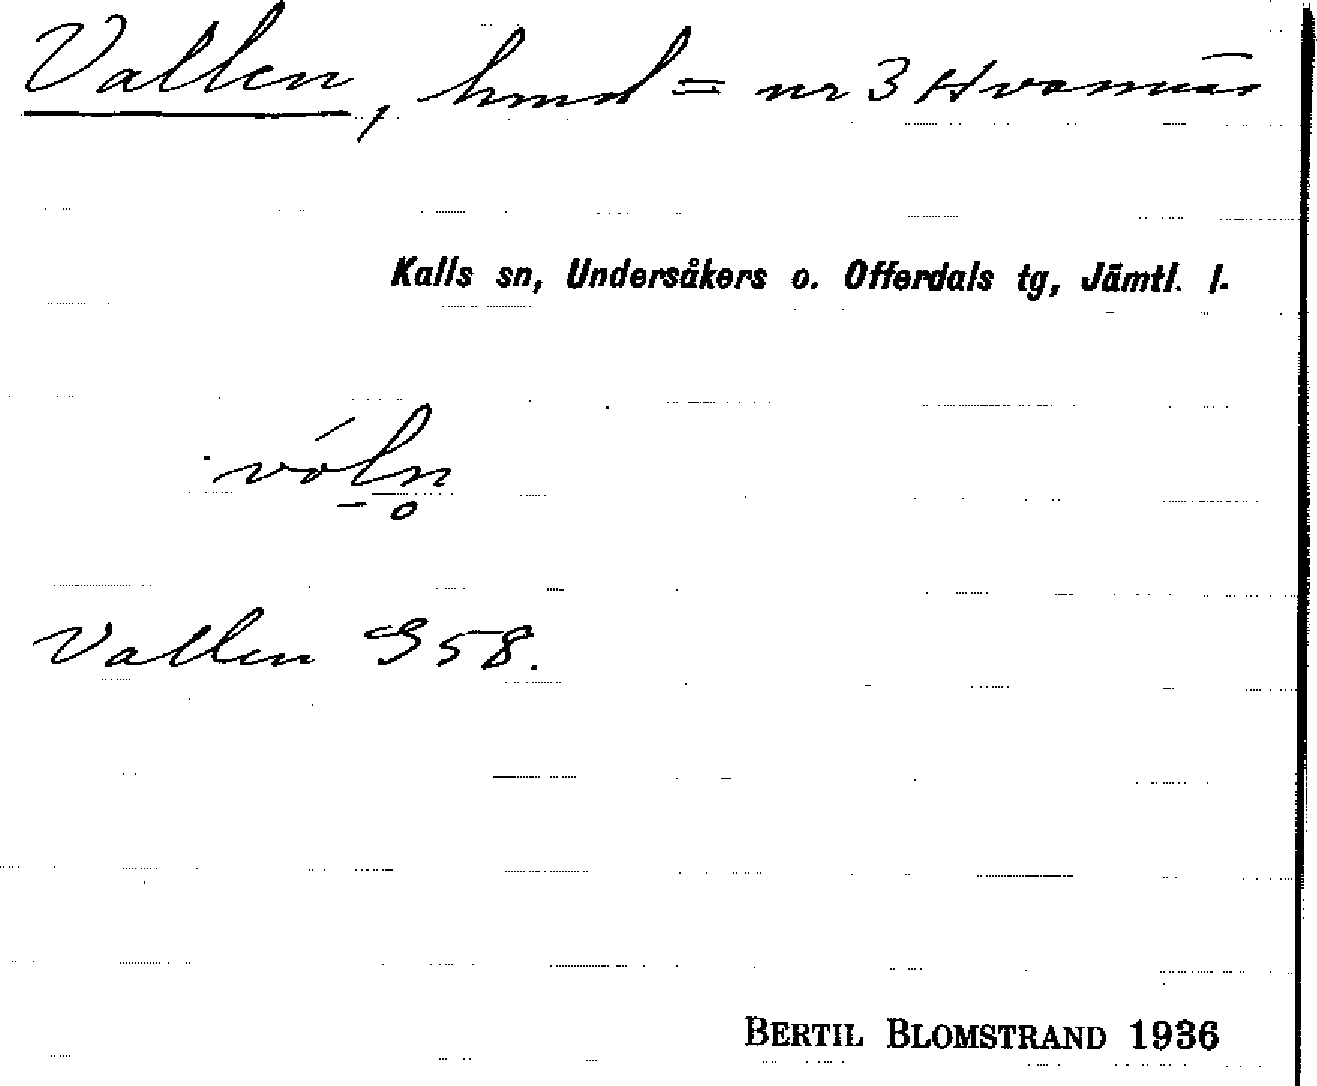 Vallen, hmd = nr 3
Kalls sn, Undersåkers o. Offerdals tg, Jämtl. l.
vóln̥
Vallen S 58.
BERTIL BLOMSTRAND 1936